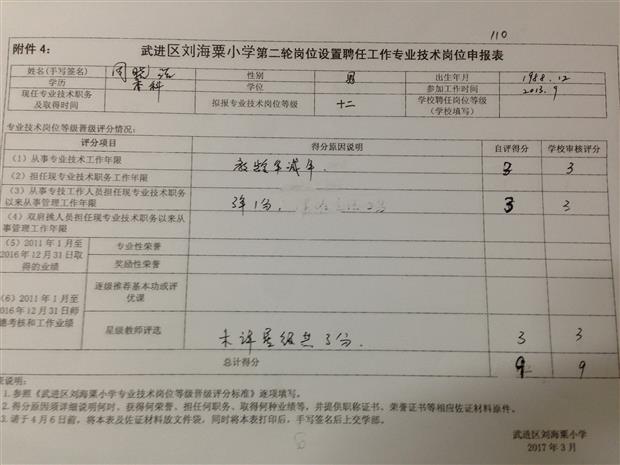 110
附件4: 武进区刘海粟小学第二轮岗位设置聘任工作专业技术岗位申报表
姓名(手写签名) 性别 男 出生年月 1988.12
学历 本科 学位 参加工作时间 2013.9
现任专业技术职务及取得时间 拟报专业技术岗位等级 十二 学校聘任岗位等级(学校填写)
专业技术岗位等级晋级评分情况:
评分项目 得分原因说明 自评得分 学校审核评分
(1)从事专业技术工作年限 教龄年减年. 3 3
(2)担任现专业技术职务工作年限
(3)从事专技工作人员担任现专业技术职务以来从事管理工作年限 3年1分, 3 3
(4)双肩挑人员担任现专业技术职务以来从事管理工作年限
(5)2011年1月至2016年12月31日取得的业绩 专业性荣誉
奖励性荣誉
(6)2011年1月至2016年12月31日师德考核和工作业绩 逐级推荐基本功或评优课
星级教师评选 未评星级共3分. 3 3
总计得分 9 9
表说明:
1.参照《武进区刘海粟小学专业技术岗位等级晋级评分标准》逐项填写。
2.得分原因须详细说明何时、获得何荣誉、担任何职务、取得何种业绩等,并提供职称证书、荣誉证书等相应佐证材料原件。
3.请于4月6日前,将本表及佐证材料放文件袋,同时将本表打印后,手写签名后上交学部。
武进区刘海粟小学
2017年3月